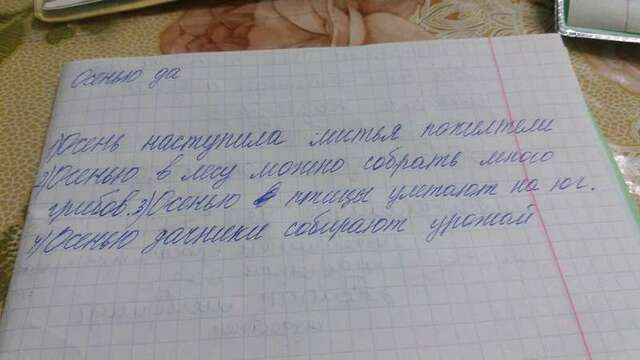 Осенью да
1)Осень наступила листья пожелтели
2)Осенью в лесу можно собрать много
грибов. 3)Осенью птицы улетают на юг.
4)Осенью дачники собирают урожай